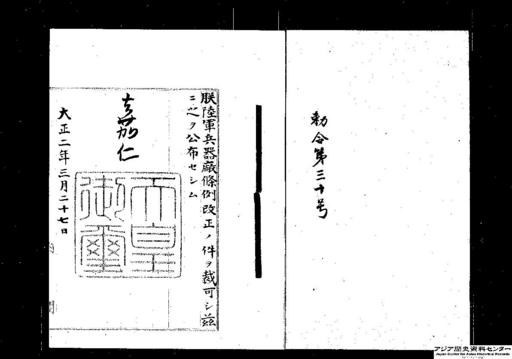 勅令第三十号
朕陸軍兵器廠條例改正ノ件ヲ裁可シ茲
ニ之ヲ公布セシム
嘉仁
天皇御璽
大正二年三月二十七日
内閣
アジア歴史資料センター
Japan Center for Asian Historical Records